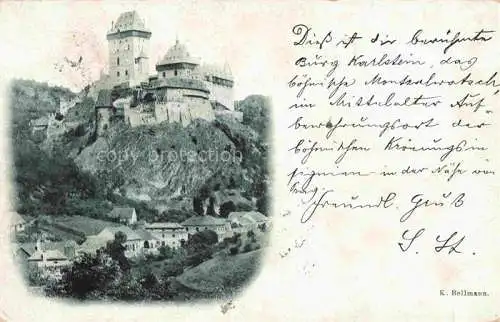 Dieß ist die berühmte
Burg Karlstein, das
böhmische Monsalvatsch
im Mittelalter Auf-
bewahrungsort der
böhmischen Krönungsin
signien in der Nähe von
Prag
Freundl. Gruß
S. St.
K. Bellmann.